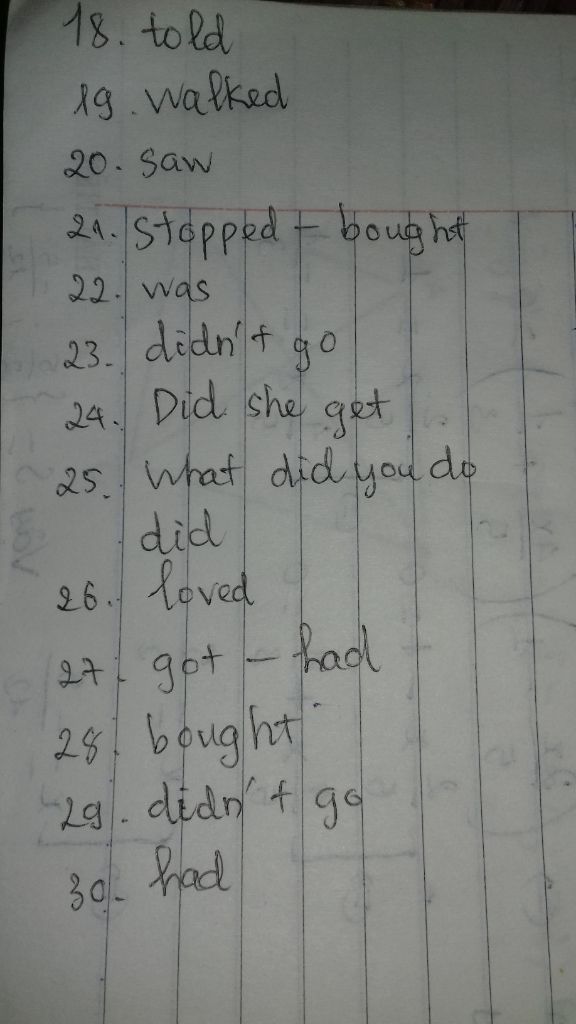 18. told
19. walked
20. saw
21. stopped - bought
22. was
23. didn't go
24. Did she get
25. What did you do
did
26. loved
27. got - had
28. bought
29. didn't go
30. had